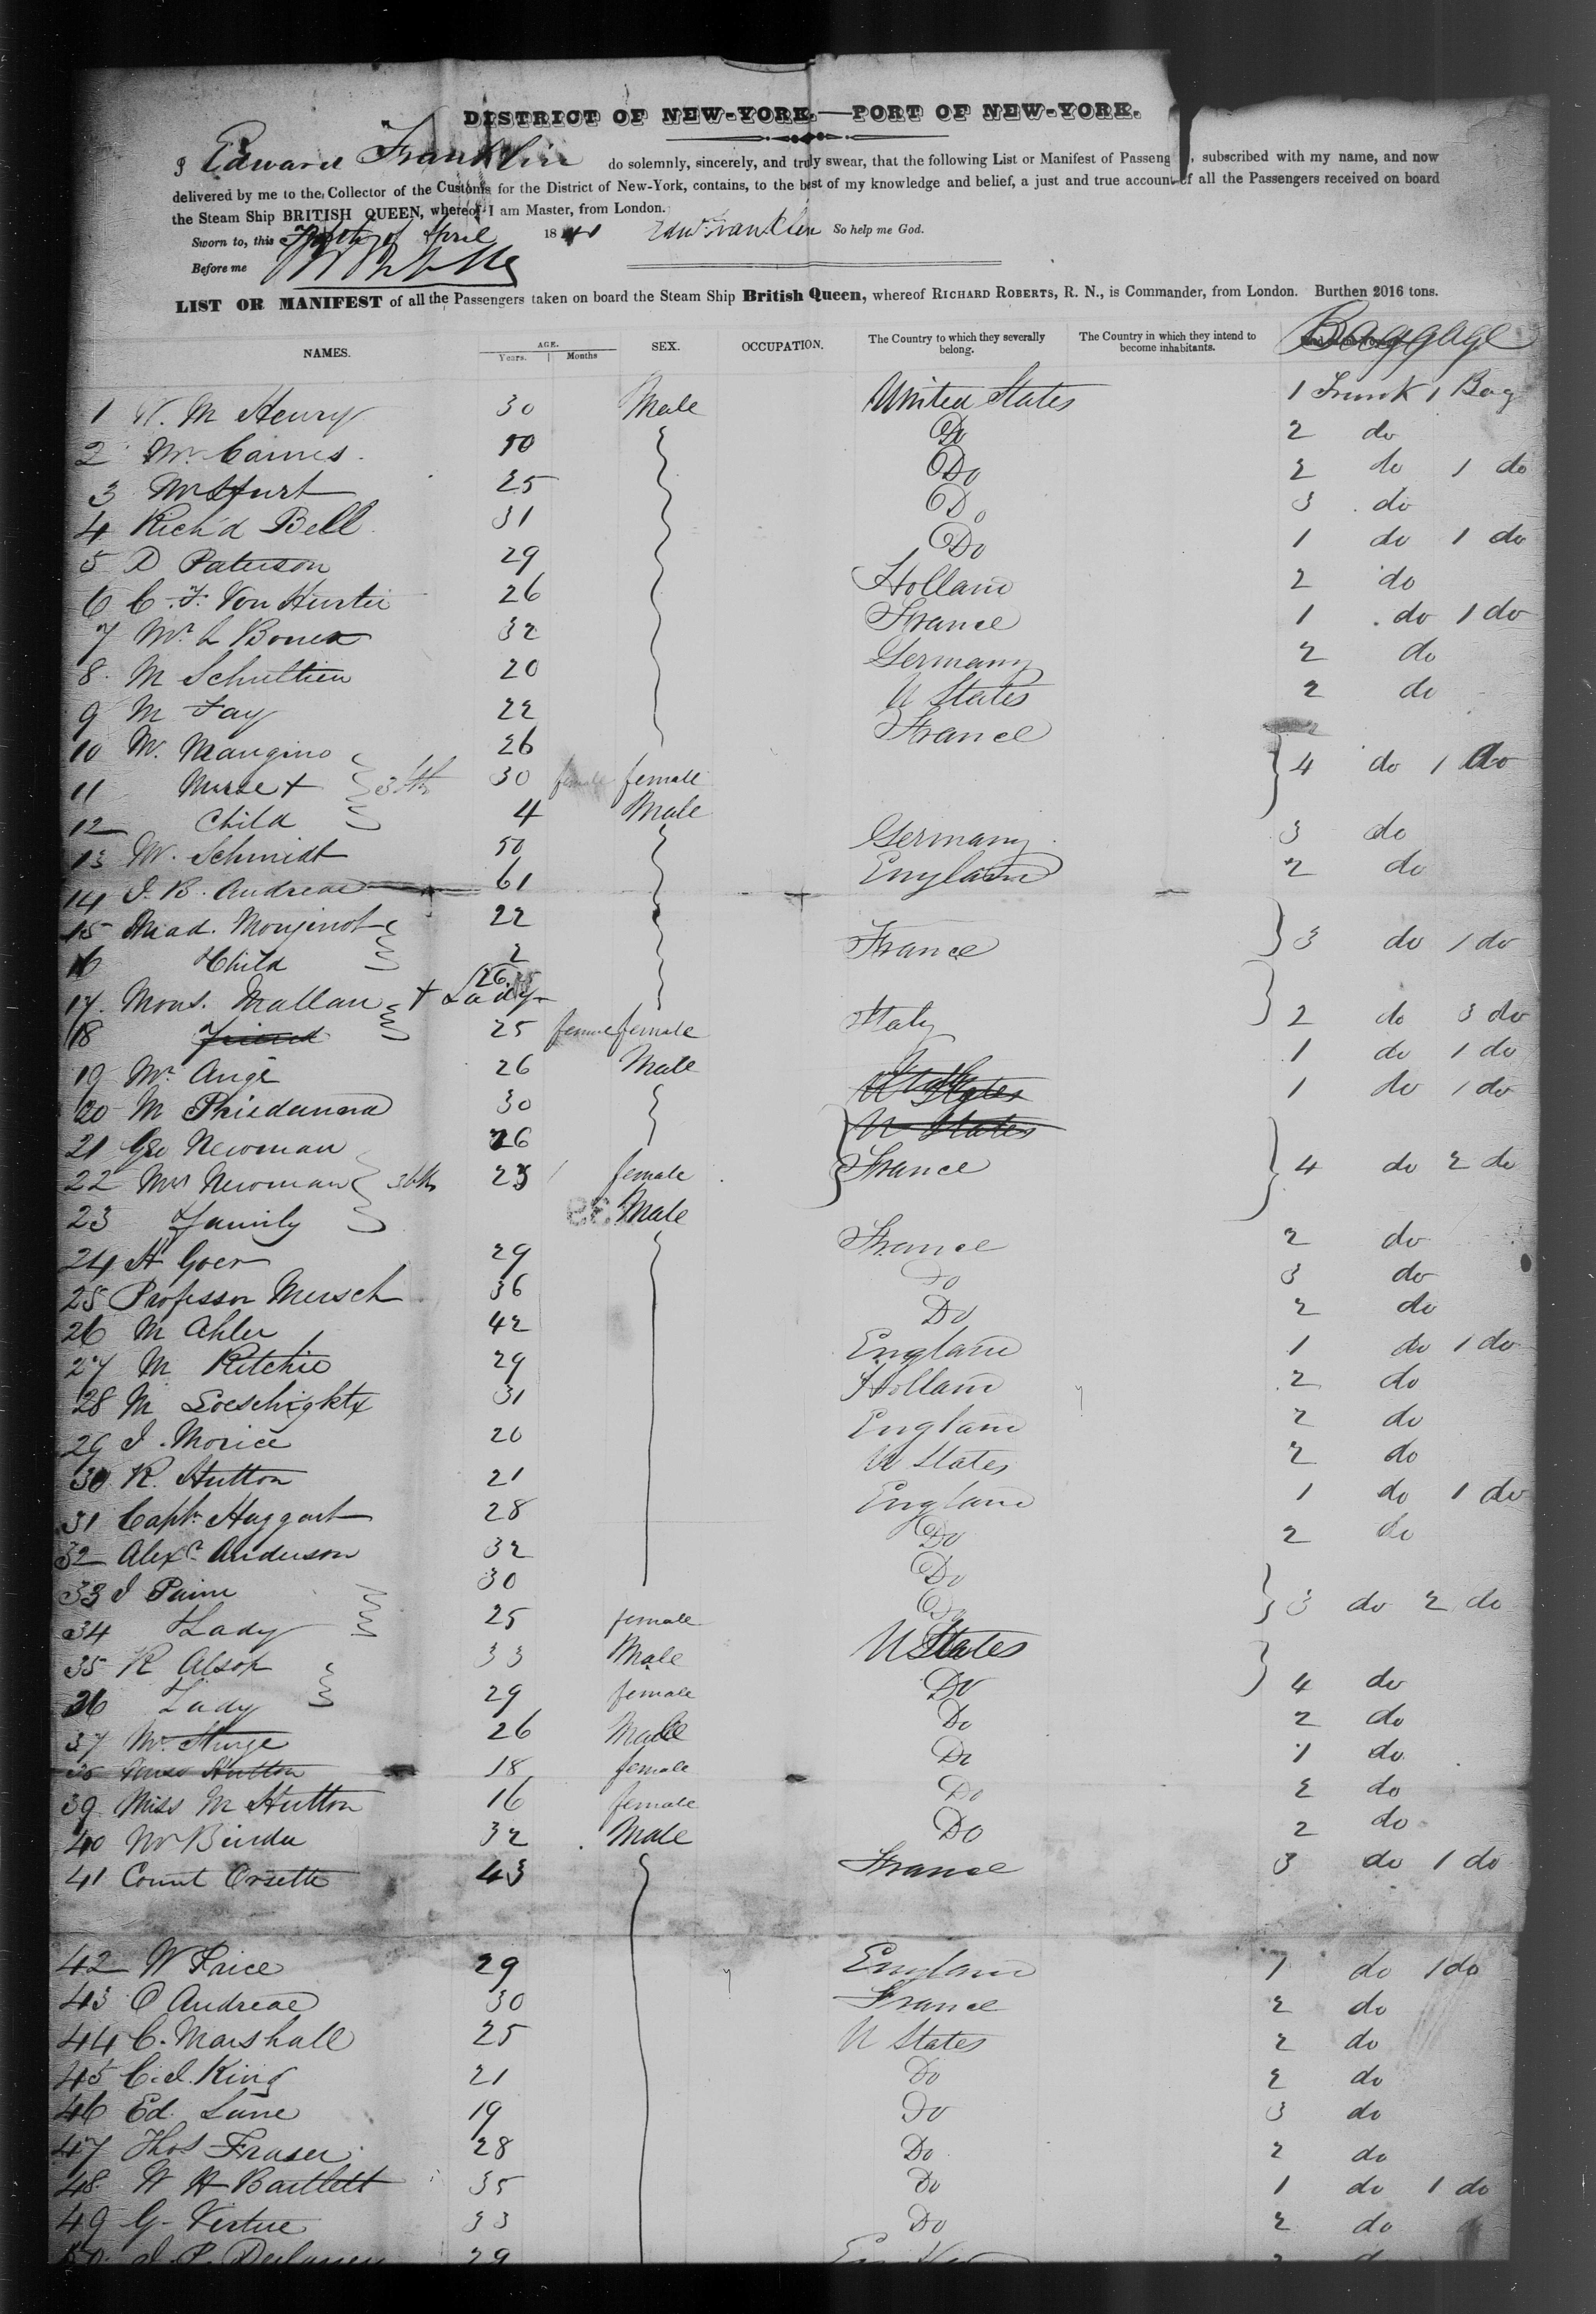 DISTRICT OF NEW-YORK.—PORT OF NEW-YORK.
I Edward Franklin do solemnly, sincerely, and truly swear, that the following List or Manifest of Passeng , subscribed with my name, and now
delivered by me to the Collector of the Customs for the District of New-York, contains, to the best of my knowledge and belief, a just and true account of all the Passengers received on board
the Steam Ship BRITISH QUEEN, whereof I am Master, from London.
Sworn to, this of April 1841 Edwd Franklin So help me God.
Before me
LIST OR MANIFEST of all the Passengers taken on board the Steam Ship British Queen, whereof RICHARD ROBERTS, R. N., is Commander, from London. Burthen 2016 tons.
NAMES. AGE. Years. Months SEX. OCCUPATION. The Country to which they severally belong. The Country in which they intend to become inhabitants. Baggage
1 W. M Henry 30 Male United States 1 Trunk 1 Bag
2 Mr. Cairns 50 Do 2 do
3 Mr Hurt 25 Do 2 do 1 do
4 Rich'd Bell 31 Do 3 do
5 D Paterson 29 Do 1 do 1 do
6 C. F. Von 26 Holland 2 do
7 Mr. L 32 France 1 do 1 do
8 M 20 Germany 2 do
9 M Fay 22 U States 2 do
10 M. Mangino 26 France
11 Nurse + 30 female female 4 do 1 do
12 Child 4 Male
13 W. Schmidt 50 Germany 3 do
14 J. B. Andreae 61 England 2 do
15 Mad. Monginot 22
16 Child 2 France 3 do 1 do
17. Mons. Mallan + Lady 26
18 Friend 25 female female Italy 2 do 3 do
19 Mr Ange 26 Male 1 do 1 do
20 M 30 U States 1 do 1 do
21 Geo Newman 26 U States
22 Mrs Newman 23 female France 4 do 2 do
23 Family Male
24 H Goer 29 France 2 do
25 Professor Mersch 36 Do 3 do
26 M Ahler 42 Do 2 do
27 M Ritchie 29 England 1 do 1 do
28 M 31 Holland 2 do
29 J. Morice 20 England 2 do
30 R. Hutton 21 U States 2 do
31 Captn Haggart 28 England 1 do 1 do
32 Alexr Anderson 32 Do 2 do
33 J 30 Do
34 Lady 25 female Do 3 do 2 do
35 R Alsop 33 Male U States
36 Lady 29 female Do 4 do
37 Mr. Sturge 26 Male Do 2 do
38 Miss Hutton 18 female Do 1 do
39 Miss M Hutton 16 female Do 2 do
40 Mr Binda 32 Male Do 2 do
41 Count Orsette 43 France 3 do 1 do
42 W Price 29 England 1 do 1 do
43 O Andreae 30 France 2 do
44 C. Marshall 25 U States 2 do
45 C. J. King 21 Do 2 do
46 Ed. Lane 19 Do 3 do
47 Thos Fraser 28 Do 2 do
48 W H Bartlett 35 Do 1 do 1 do
49 G. Virtue 33 Do 2 do
50. J. P. 29